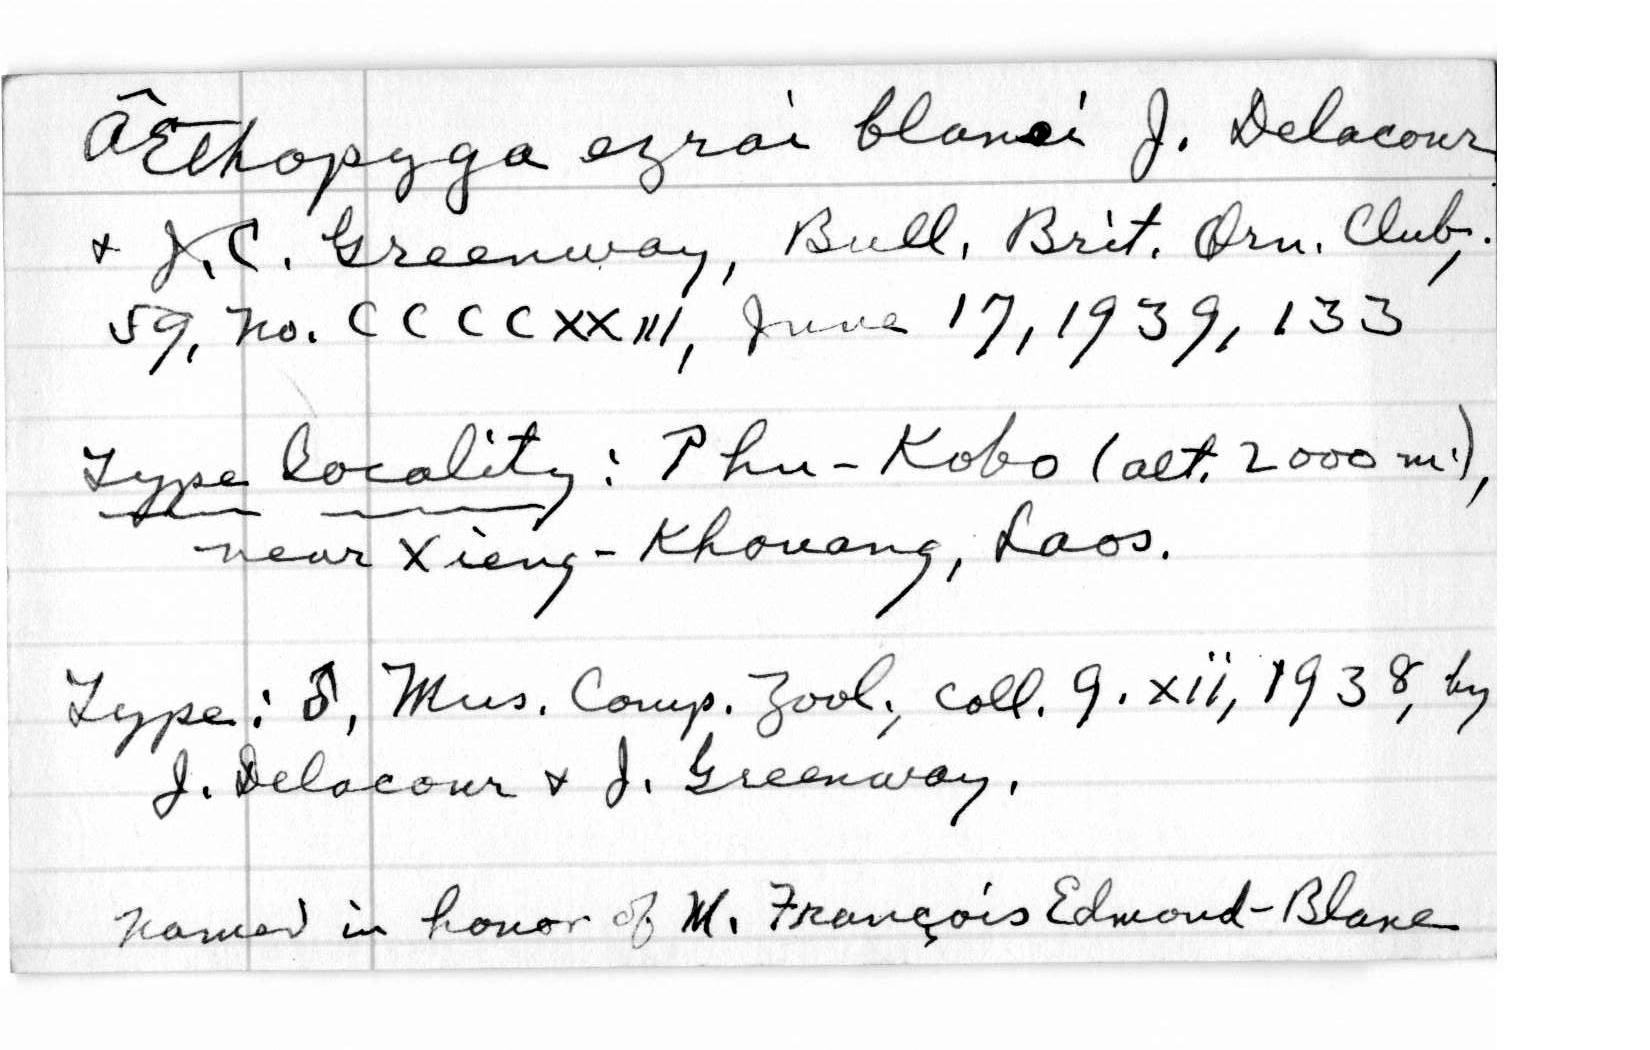 Æthopyga ezrai blanci J. Delacour
& J. C. Greenway, Bull. Brit. Orn. Club,
59, no. CCCCXXIII, June 17, 1939, 133
Type locality: Phu-Kobo (alt. 2000 m.),
near Xieng-Khouang, Laos.
Type: ♂, Mus. Comp. Zool., coll. 9.xii, 1938, by
J. Delacour & J. Greenway.
Named in honor of M. François Edmond-Blanc